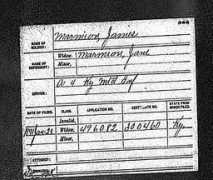 NAME OF SOLDIER: Marmion, James
NAME OF DEPENDENT: Widow, Marmion, Jane
Minor,
SERVICE: Ky Mtd Inf
DATE OF FILING. CLASS. APPLICATION NO. CERTIFICATE NO. STATE FROM WHICH FILED.
Invalid,
Widow, 496082 300460 Ky.
Minor,
ATTORNEY: